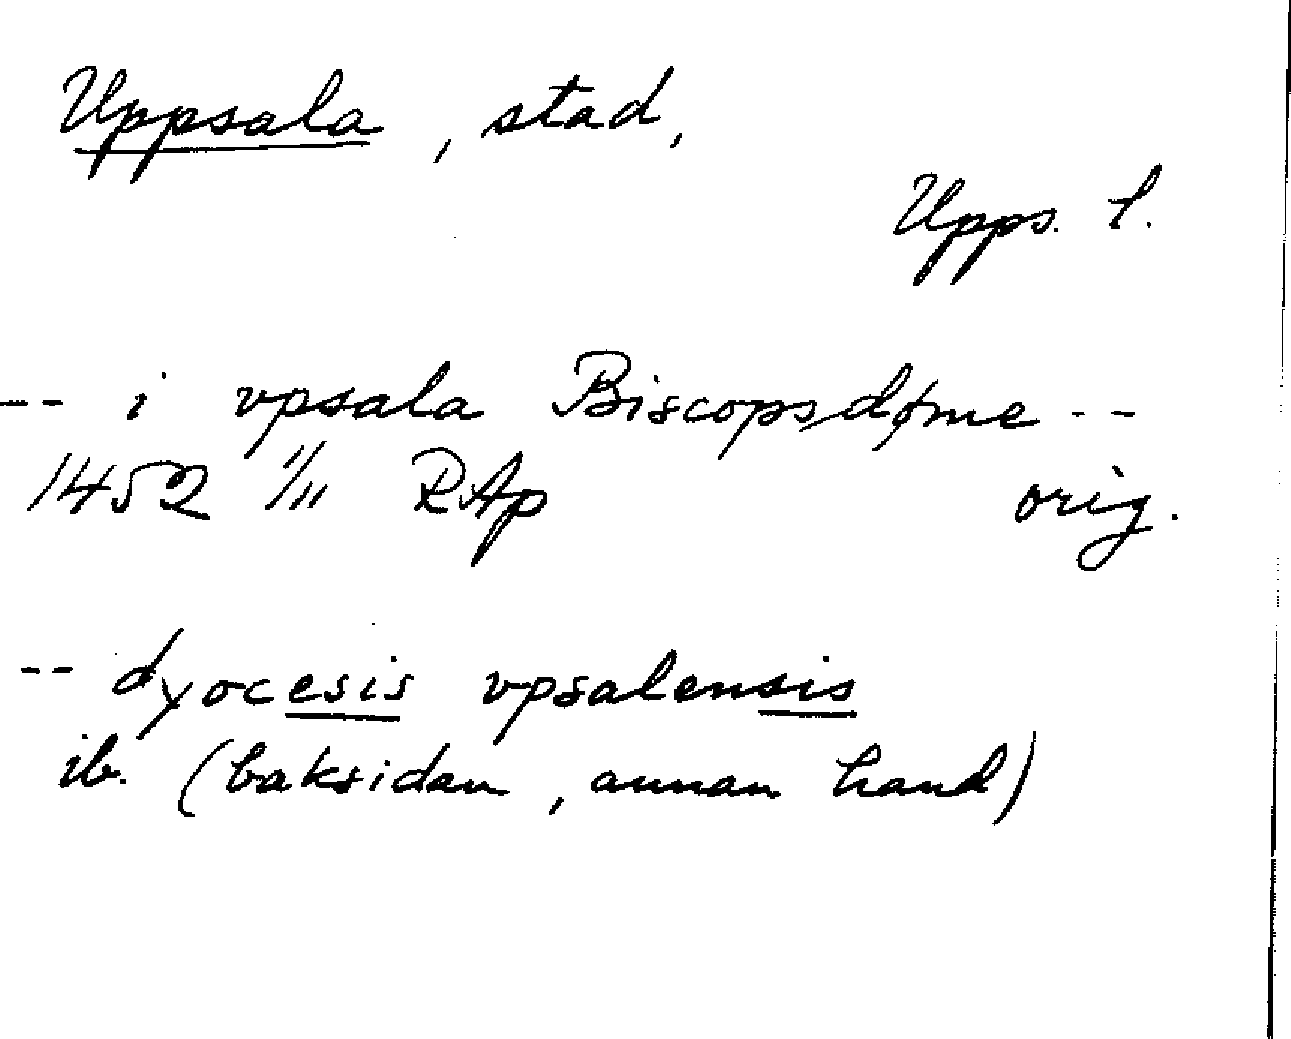 Uppsala, stad,
Upps. l.
-- i vpsala Biscopsdøme --
1452 1/11 RAp orig.
-- dyocesis vpsalensis
ib. (baksidan, annan hand)